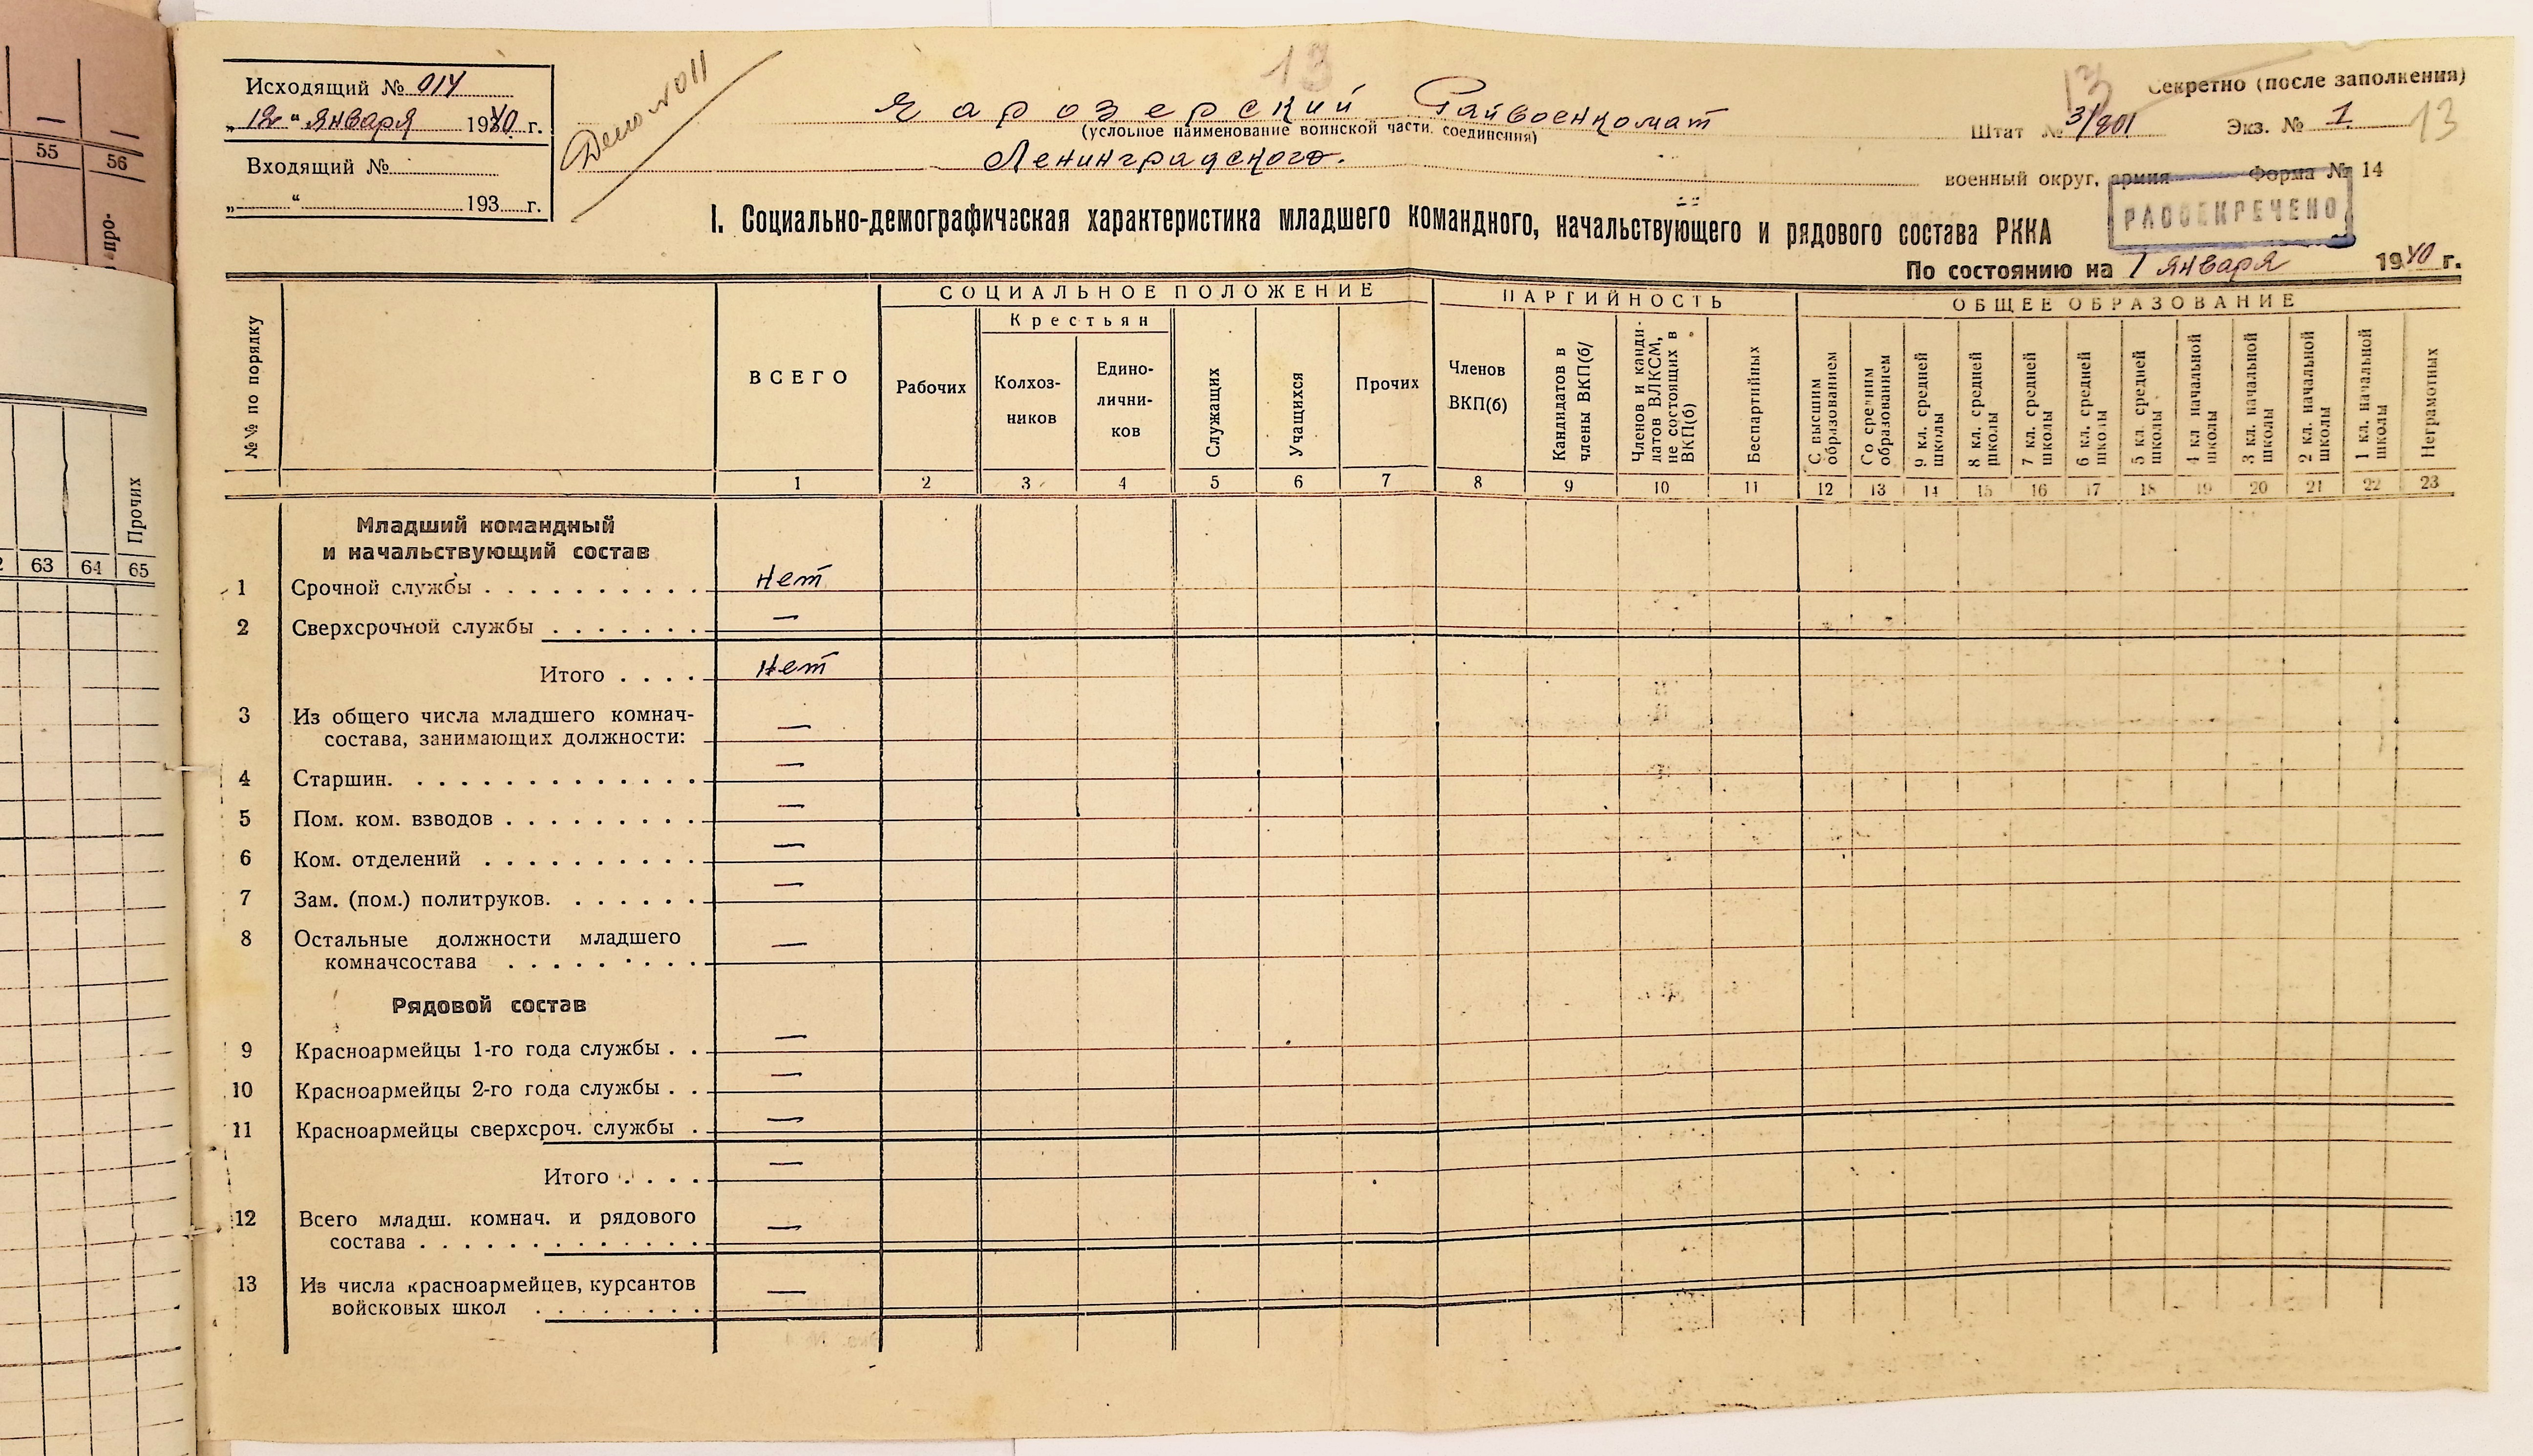 Исходящий № 014
„12“ января 1940 г.
Входящий №
„ “ 193 г.
13
озерский Райвоенкомат
(условное наименование воинской части, соединения)
Ленинградского.
военный округ, армия
Секретно (после заполнения)
13
Штат № 3/801 Экз. № 1
13
Форма № 14
РАССЕКРЕЧЕНО
I. Социально-демографическая характеристика младшего командного, начальствующего и рядового состава РККА
По состоянию на 1 января 1940 г.
№№ по порядку
ВСЕГО
СОЦИАЛЬНОЕ ПОЛОЖЕНИЕ
Рабочих
Крестьян
Колхоз-
ников
Едино-
лични-
ков
Служащих
Учащихся
Прочих
ПАРТИЙНОСТЬ
Членов
ВКП(б)
Кандидатов в
члены ВКП(б/
Членов и канди-
датов ВЛКСМ,
не состоящих в
ВКП(б)
Беспартийных
ОБЩЕЕ ОБРАЗОВАНИЕ
С высшим
образованием
Со средним
образованием
9 кл. средней
школы
8 кл. средней
школы
7 кл. средней
школы
6 кл. средней
школы
5 кл. средней
школы
4 кл начальной
школы
3 кл. начальной
школы
2 кл. начальной
школы
1 кл. начальной
школы
Неграмотных
1 2 3 4 5 6 7 8 9 10 11 12 13 14 15 16 17 18 19 20 21 22 23
Младший командный
и начальствующий состав
1 Срочной службы . . . . . . . . . . Нет
2 Сверхсрочной службы . . . . . . . —
Итого . . . . Нет
3 Из общего числа младшего комнач-
состава, занимающих должности: —
4 Старшин. . . . . . . . . . . . . . —
5 Пом. ком. взводов . . . . . . . . . —
6 Ком. отделений . . . . . . . . . . —
7 Зам. (пом.) политруков. . . . . . . —
8 Остальные должности младшего
комначсостава . . . . . . . . . —
Рядовой состав
9 Красноармейцы 1-го года службы . . —
10 Красноармейцы 2-го года службы . . —
11 Красноармейцы сверхсроч. службы . —
Итого . . . . —
12 Всего младш. комнач. и рядового
состава . . . . . . . . . . . . . —
13 Из числа красноармейцев, курсантов
войсковых школ . . . . . . . —
55 56
про-
Прочих
63 64 65